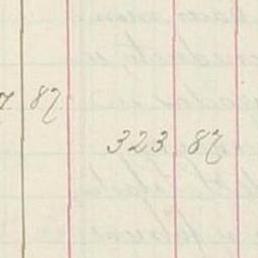 7 87
323 87